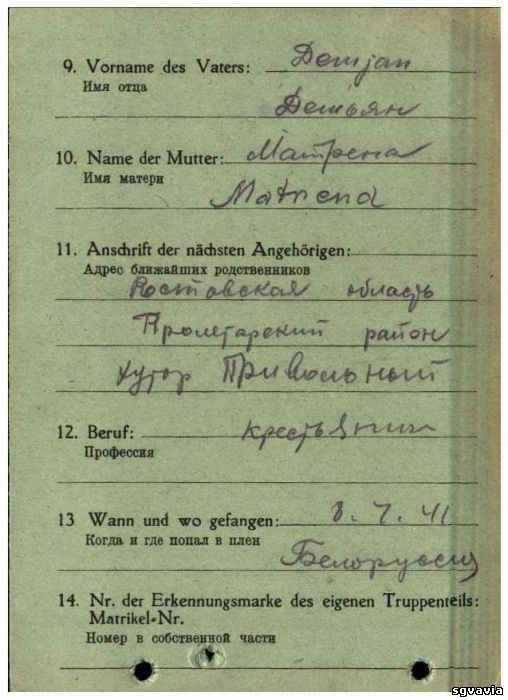 9. Vorname des Vaters: Demjan
Имя отца
Демьян
10. Name der Mutter: Матрена
Имя матери
Matrena
11. Anschrift der nächsten Angehörigen:
Адрес ближайших родственников
Ростовская область
Пролетарский район
хутор Привольный
12. Beruf: крестьянин
Профессия
13 Wann und wo gefangen: 8.7.41
Когда и где попал в плен
Белоруссия
14. Nr. der Erkennungsmarke des eigenen Truppenteils:
Matrikel-Nr.
Номер в собственной части
sgvavia